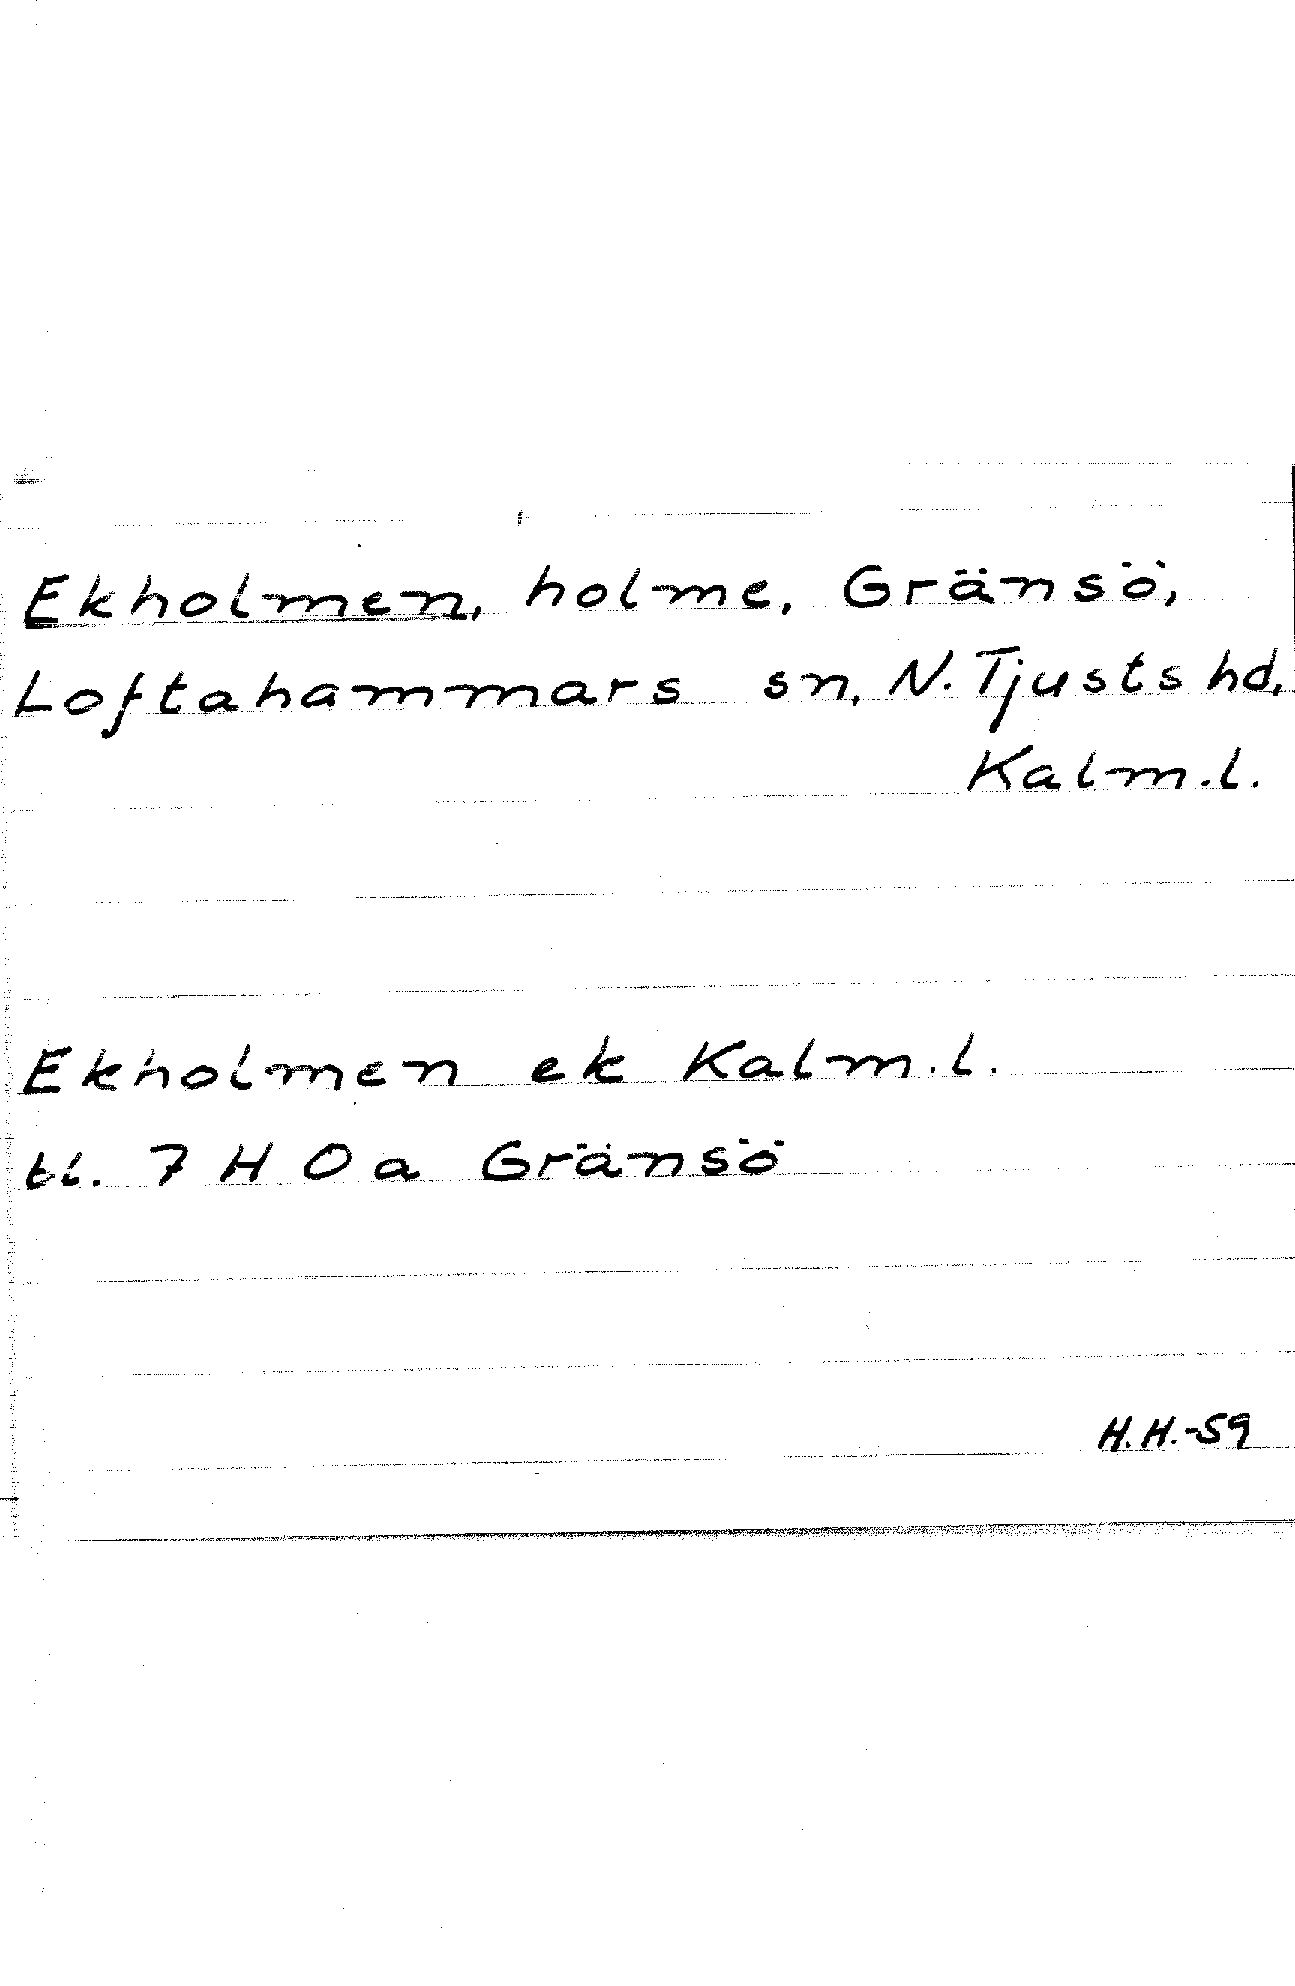 Ekholmen, holme, Gränsö,
Loftahammars sn, N. Tjusts hd,
Kalm.l.
Ekholmen ek Kalm.l.
tl. 7 H 0 a Gränsö
H.H.-59